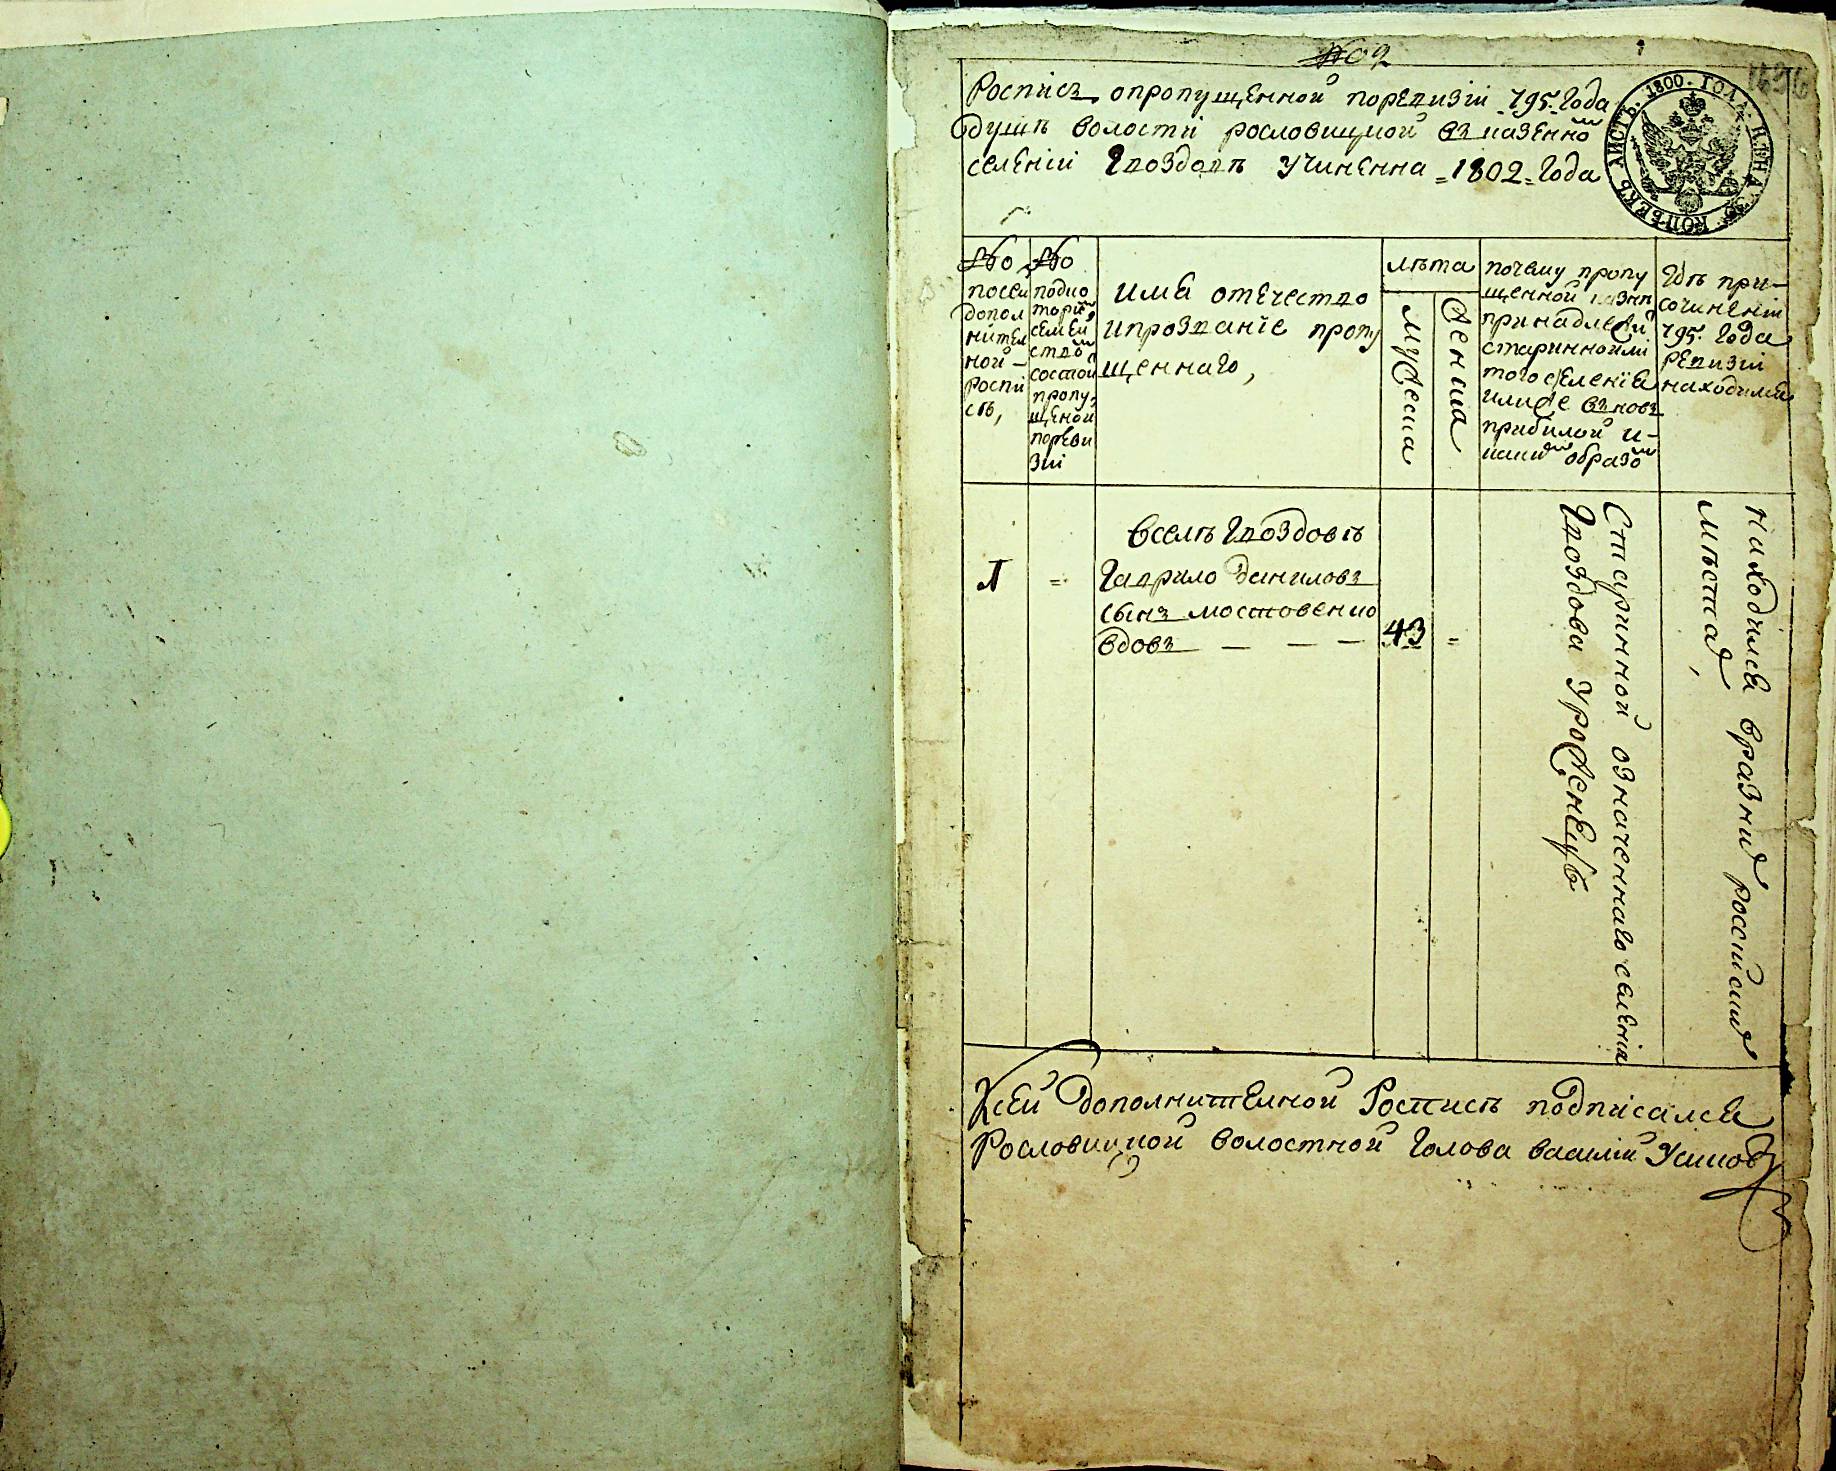 № 2
Роспись опропущенной поревизіи 795. года
душѣ волости рословицкой въ казенно
селеніи Гвоздовѣ учиненна 1802 года
ЛИСТЪ. 1800. ГОДА. ЦѢНА 30 КОПѢЕКЪ
№
посеи
допол
нител
ной
роспи
сѣ,
№
подко
торы
семей
ство
состои
пропу
щеной
పореви
зіи
имя отечество
ипрозваніе пропу
щеннаго,
лѣта
мужеска
женска
почему пропу
щенной казнѣ
принадлежи
стариннойли
того селенія
илиже вновь
прибылой и
каки образо
Гдѣ при
сочиненіи
795. года
ревизіи
находился
1
вселѣ Гвоздовѣ
Гаврило Даниловъ
сынъ мостовенко
вдовъ
43
Старинной означеннаго селенія
Гвоздова уроженецъ
Находился вразних российских
мѣстах,
Ксей дополнителной Росписѣ подписался
Рословицкой волостной Голова василій